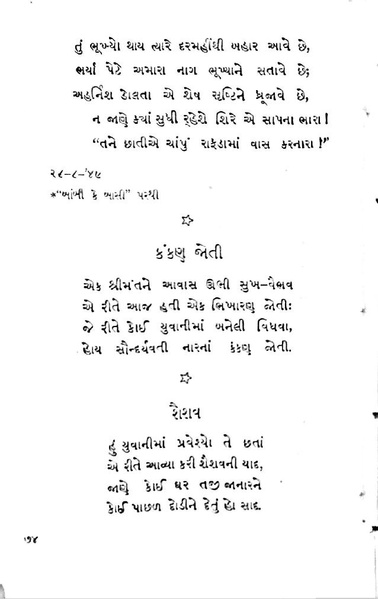 તું ભૂખ્યો થાય ત્યારે દરમહીંથી બહાર આવે છે,
ભર્યા પેટે અમારા નાગ ભૂખ્યાને સતાવે છે;
અહર્નિશ ડોલતા એ શેષ સૃષ્ટિને ધ્રૂજાવે છે,
ન જાણે ક્યાં સુધી રહેશે શિરે એ સાપના ભારા!
“તને છાતીએ ચાંપું રાફડામાં વાસ કરનારા!”
૨૮-૮-’૪૯
*“આંબી કે આસી” પરથી
કંકણ જોતી
એક શ્રીમંતને આવાસ ઊભી સુખ-વૈભવ
એ રીતે આજ હતી એક ભિખારણ જોતી:
જે રીતે કોઈ યુવાનીમાં બનેલી વિધવા,
હોય સૌન્દર્યવતી નારનાં કંકણ જોતી.
શૈશવ
હું યુવાનીમાં પ્રવેશ્યો તે છતાં
એ રીતે આવ્યા કરી શૈશવની યાદ,
જાણે કોઈ ઘર તજી જાનારને
કોઈ પાછળ દોડીને દેતું હો સાદ.
૭૪